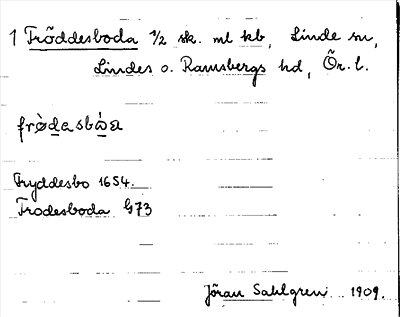 1 Fröddesboda ½ sk. ml kb, Linde sn,
Lindes o. Ramsbergs hd, Ör. l.
frø̀dasbɷ̀a
Fryddesbo 1654.
Frodesboda G73
Jöran Sahlgren 1909.